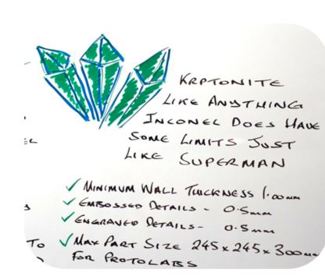 KRPTONITE
LIKE ANYTHING
INCONEL DOES HAVE
SOME LIMITS JUST
LIKE SUPERMAN
✓ MINIMUM WALL THICKNESS 1.00mm
✓ EMBOSSED DETAILS - 0.5mm
✓ ENGRAVED DETAILS - 0.5mm
TO ✓ MAX PART SIZE 245x245x300mm
FOR PROTOLABS